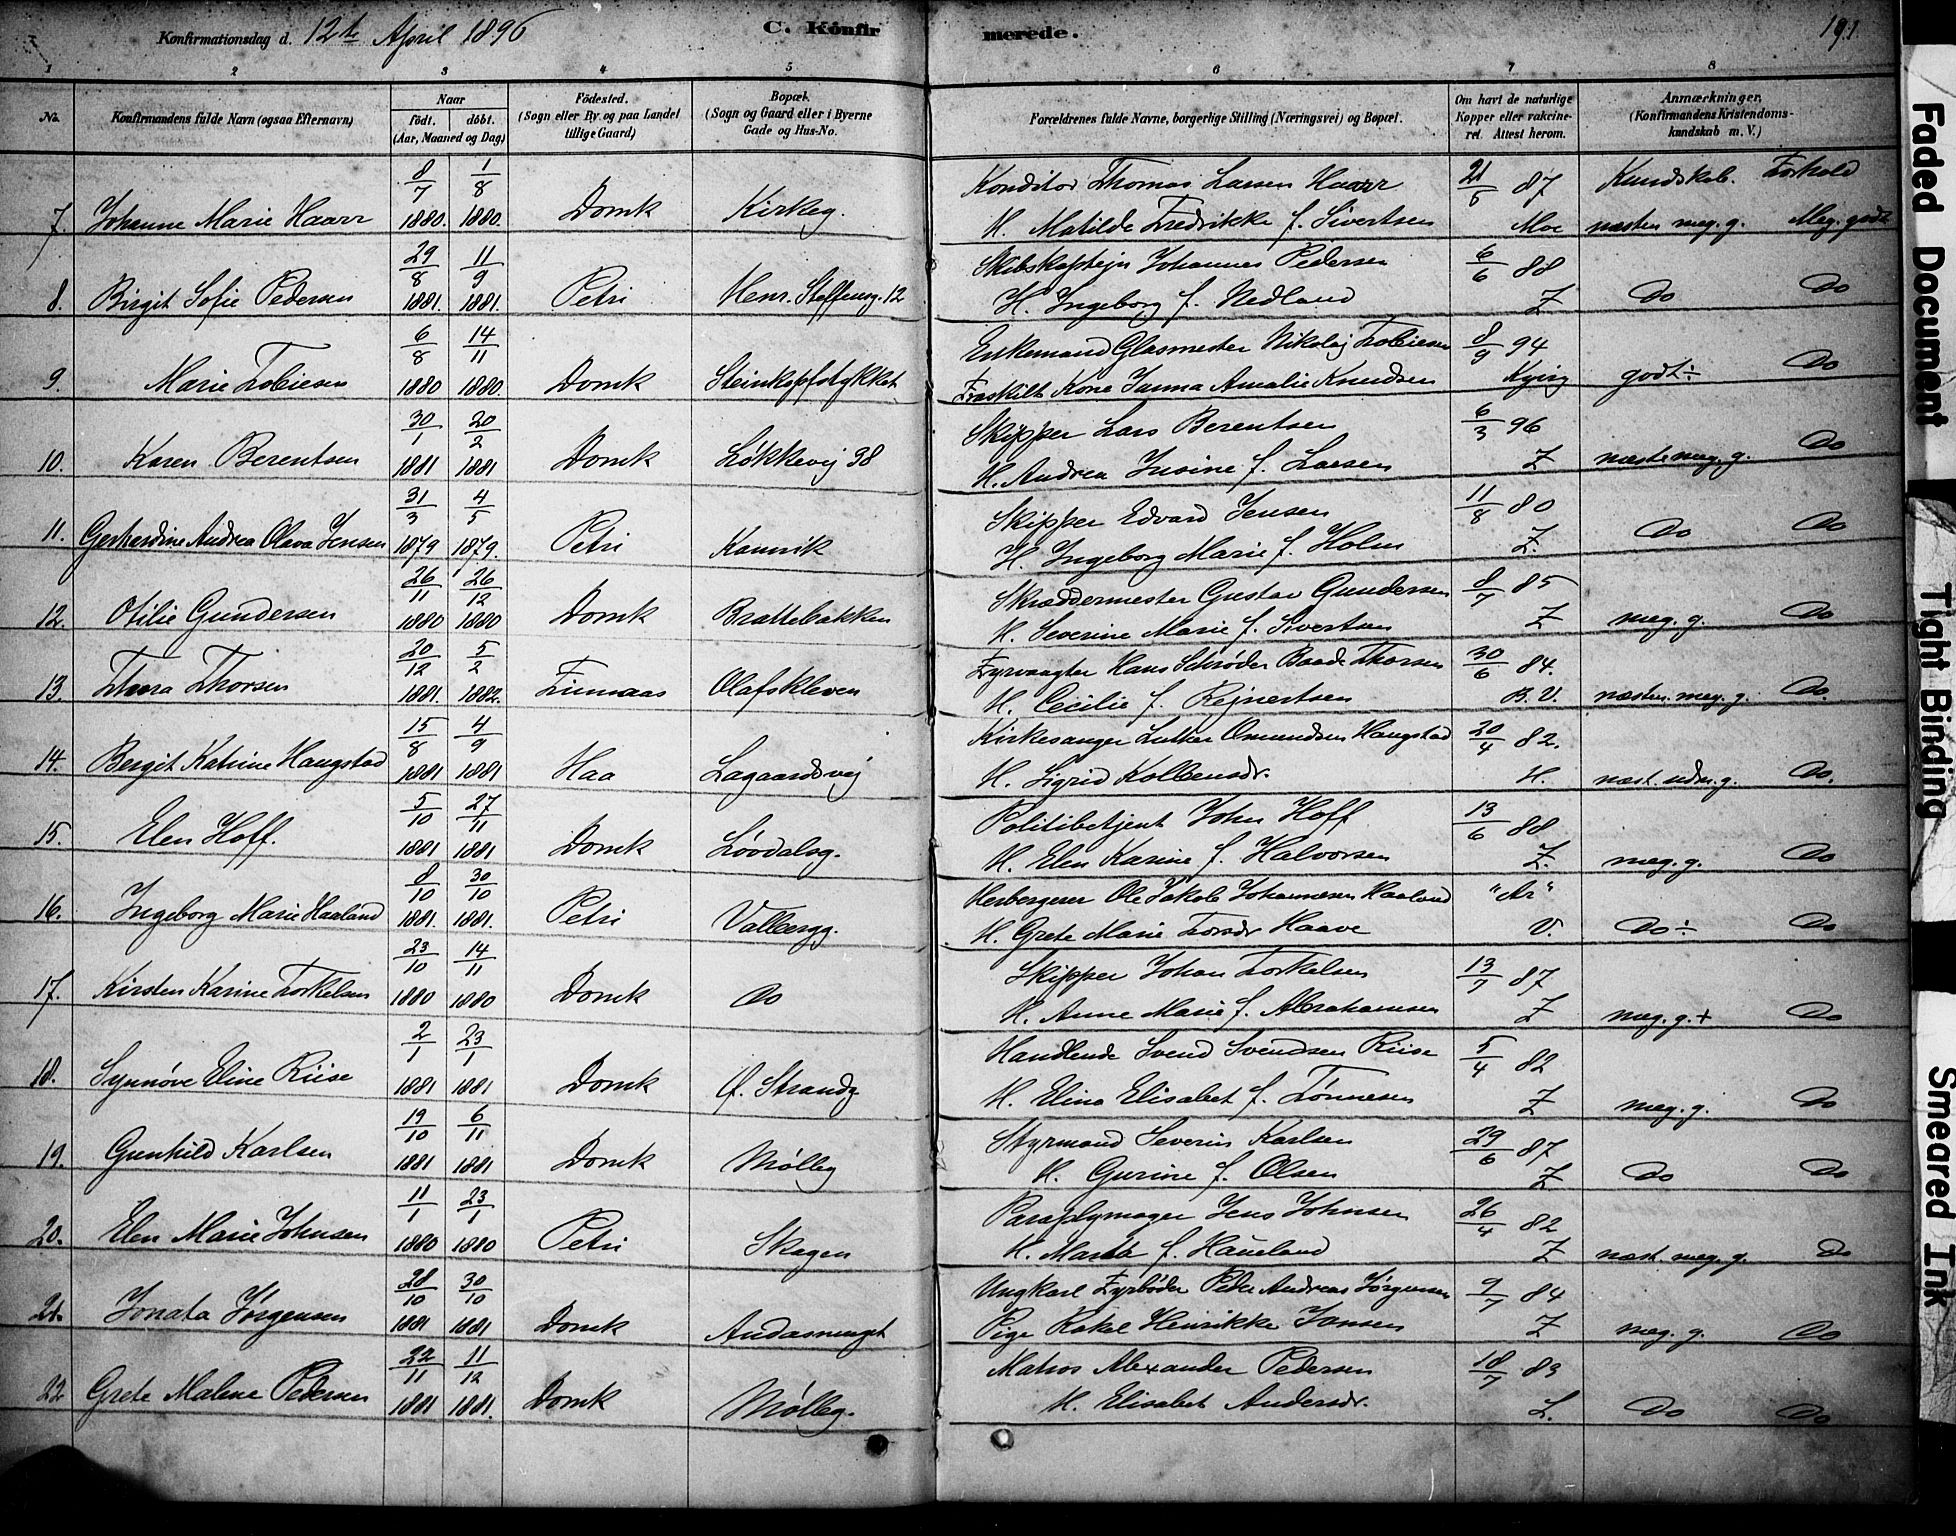 Konfirmationsdag d. 12te April 1896 C. Konfirmerede. 191
1 2 3 4 5 6 7 8
No. Konfirmandens fulde Navn (ogsaa Efternavn) Naar Födt. döbt. (Aar, Maaned og Dag) Födested. (Sogn eller By og paa Landet tillige Gaard) Bopæl. (Sogn og Gaard eller i Byerne Gade og Hus-No. Forældrenes fulde Navne, borgerlige Stilling (Næringsvei) og Bopæl. Om havt de naturlige Kopper eller vakcineret. Attest herom. Anmærkninger. (Konfirmandens Kristendomskundskab m. V.)
8/7 1/8 Konditor Thomas Larsen Haarr 21/5 87 Kundskab. Forhold
7. Johanne Marie Haarr 1880. 1880. Domk Kirkeg. H. Matilde Fredrikke f. Sivertsen Moe næsten meg. g. Meg. godt
29/8 11/9 Skibskaptejn Johannes Pedersen 6/6 88
8. Birgit Sofie Pedersen 1881. 1881. Petri Henr. Steffensg. 12 H. Ingeborg f. Nedland Z Do Do
6/8 14/11 Enkemand Glasmester Nikolaj Tobiesen 8/9 94
9. Marie Tobiesen 1880 1880. Domk Steinkopfstykket Fraskilt Kone Janna Amalie Knudsen Kyvig godt÷ Do
30/1 20/2 Skipper Lars Berentsen 6/3 96
10. Karen Berentsen 1881 1881 Domk Løkkevej 38 H. Andrea Jusine f. Larsen Z næste meg. g. Do
31/3 4/5 Skipper Edvard Jensen 11/8 80
11. Gerhardine Andrea Olava Jensen 1879 1879. Petri Kannik H. Ingeborg Marie f. Holm Z. Do Do
26/11 26/12 Skræddermester Gustav Gundersen 8/7 85
12. Otilie Gundersen 1880 1880 Domk Brattebakken H. Severine Marie f. Sivertsen Z meg. g. Do
20/12 5/2 Fyrvaagter Hans Schrøder Baade Thorsen 30/6 84.
13. Thora Thorsen 1881. 1882. Finnaas Olafskleven H. Cecilie f. Rejnertsen B. V. næsten. meg. g. Do.
15/8 4/9 Kirkesanger Luther Omundsen Haugstad 20/4 82.
14. Bergit Katrine Haugstad 1881 1881 Haa Lagaardsvej H. Sigrid Kolbensdr. H. næst. udm. g. Do.
5/10 27/11 Politibetjent John Hoff 13/6 88
15. Elen Hoff. 1881 1881 Domk Løvdalsg. H. Elen Karine f. Halvorsen Z. meg. g. Do
8/10 30/10 Herbergerer Ole Jakob Johannesen Haaland "Ar"
16. Ingeborg Marie Haaland 1881. 1881. Petri Valbergg. H. Grete Marie Torsdr Haave V. Do÷ Do
23/10 14/11 Skipper Johan Torkelsen 13/7 87
17. Kirsten Karine Torkelsen 1880 1880 Domk Do H. Anne Marie f. Abrahamsen Z meg. g.+ Do
2/1 23/1 Handlende Svend Svendsen Riise 5/4 82
18. Synnøve Eline Riise 1881 1881 Domk Ø. Strandg H. Elina Elisabet f. Tønnesen Z meg. g. Do
19/10 6/11 Styrmand Severin Karlsen 29/6 87
19. Gunhild Karlsen 1881 1881 Domk Mølleg H. Gurine f. Olsen Z Do Do
11/1 23/1 Paraplymager Jens Johnsen 26/4 82
20. Elen Marie Johnsen 1880 1880 Petri Skagen H. Marta f. Haueland Z næst. meg. g. Do
28/10 30/10 Ungkarl Fyrbøder Peder Andreas Jørgensen 9/7 84
21. Jonata Jørgensen 1881 1881 Domk Andasmuget Pige Rakel Henrikke Jansen Z meg. g. Do
22/11 11/12 Matros Alexander Pedersen 18/7 83
22 Grete Malene Pedersen 1881 1881. Domk Mølleg. H. Elisabet Andersdr. Z. Do Do
Faded Document
Tight Binding
Smeared Ink